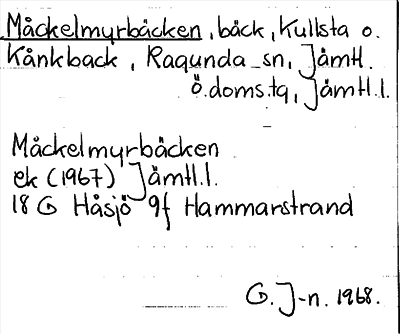 Måckelmyrbäcken, bäck, Kullsta o.
Kånkback, Ragunda sn, Jämtl.
ö.doms.tg, Jämtl.l.
Måckelmyrbäcken
ek (1967) Jämtl.l.
18 G Håsjö 9f Hammarstrand
G. J-n. 1968.